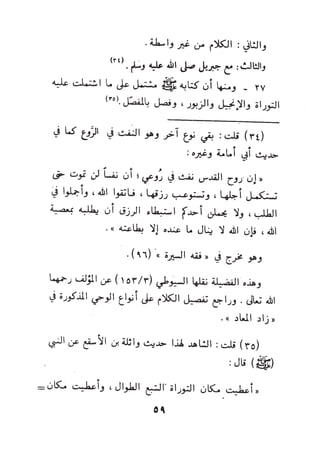 والثاني : الكلام من غير واسطة .
والثالث : مع جبريل صلى الله عليه وسلم . (٣٤)
٢٧ - ومنها أن كتابه ﷺ مشتمل على ما اشتملت عليه
التوراة والإنجيل والزبور ، وفصل بالمفصل . (٣٥)
(٣٤) قلت : بقي نوع آخر وهو النفث في الرَّوع كما في
حديث أبي أمامة وغيره :
« إن روح القدس نفث في رُوعي ؛ أن نفساً لن تموت حتى
تستكمل أجلها ، وتستوعب رزقها ، فاتقوا الله ، وأجملوا في
الطلب ، ولا يحملن أحدكم استبطاء الرزق أن يطلبه بمعصية
الله ، فإن الله لا ينال ما عنده إلا بطاعته » .
وهو مخرج في « فقه السيرة » (٩٦) .
وهذه الفضيلة نقلها السيوطي (١٥٣/٣) عن المؤلف رحمهما
الله تعالى . وراجع تفصيل الكلام على أنواع الوحي المذكورة في
« زاد المعاد » .
(٣٥) قلت : الشاهد لهذا حديث واثلة بن الأسقع عن النبي
(ﷺ) قال :
« أعطيت مكان التوراة السبع الطوال ، وأعطيت مكان =
٥٩